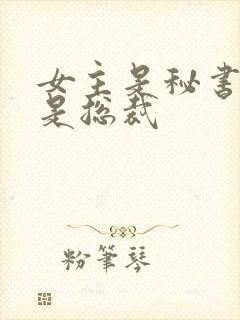 女主是秘书
是总裁
粉筆琴